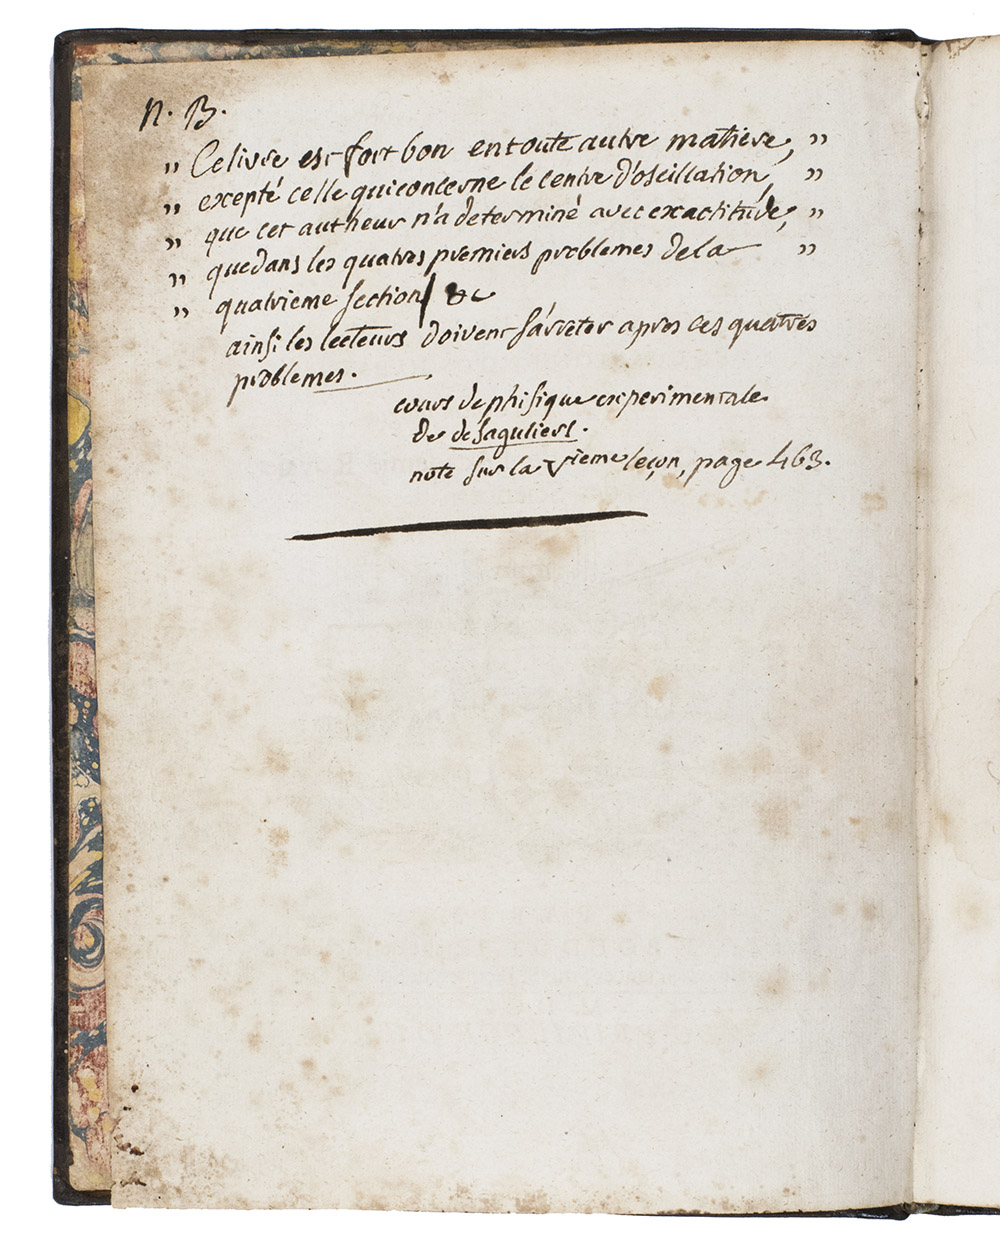 n. B.
„ Ce livre est fort bon en toute autre matiere, „
„ excepté celle qui concerne le centre d'oscillation, „
„ que cet autheur n'a determiné avec exactitude, „
„ que dans les quatres premiers problemes de la „
„ quatrieme section / &c
ainsi les lecteurs doivent s'arreter apres ces quatres
problemes.
cours de phisique experimentale
de desaguliers.
note sur la Vieme leçon, page 463.